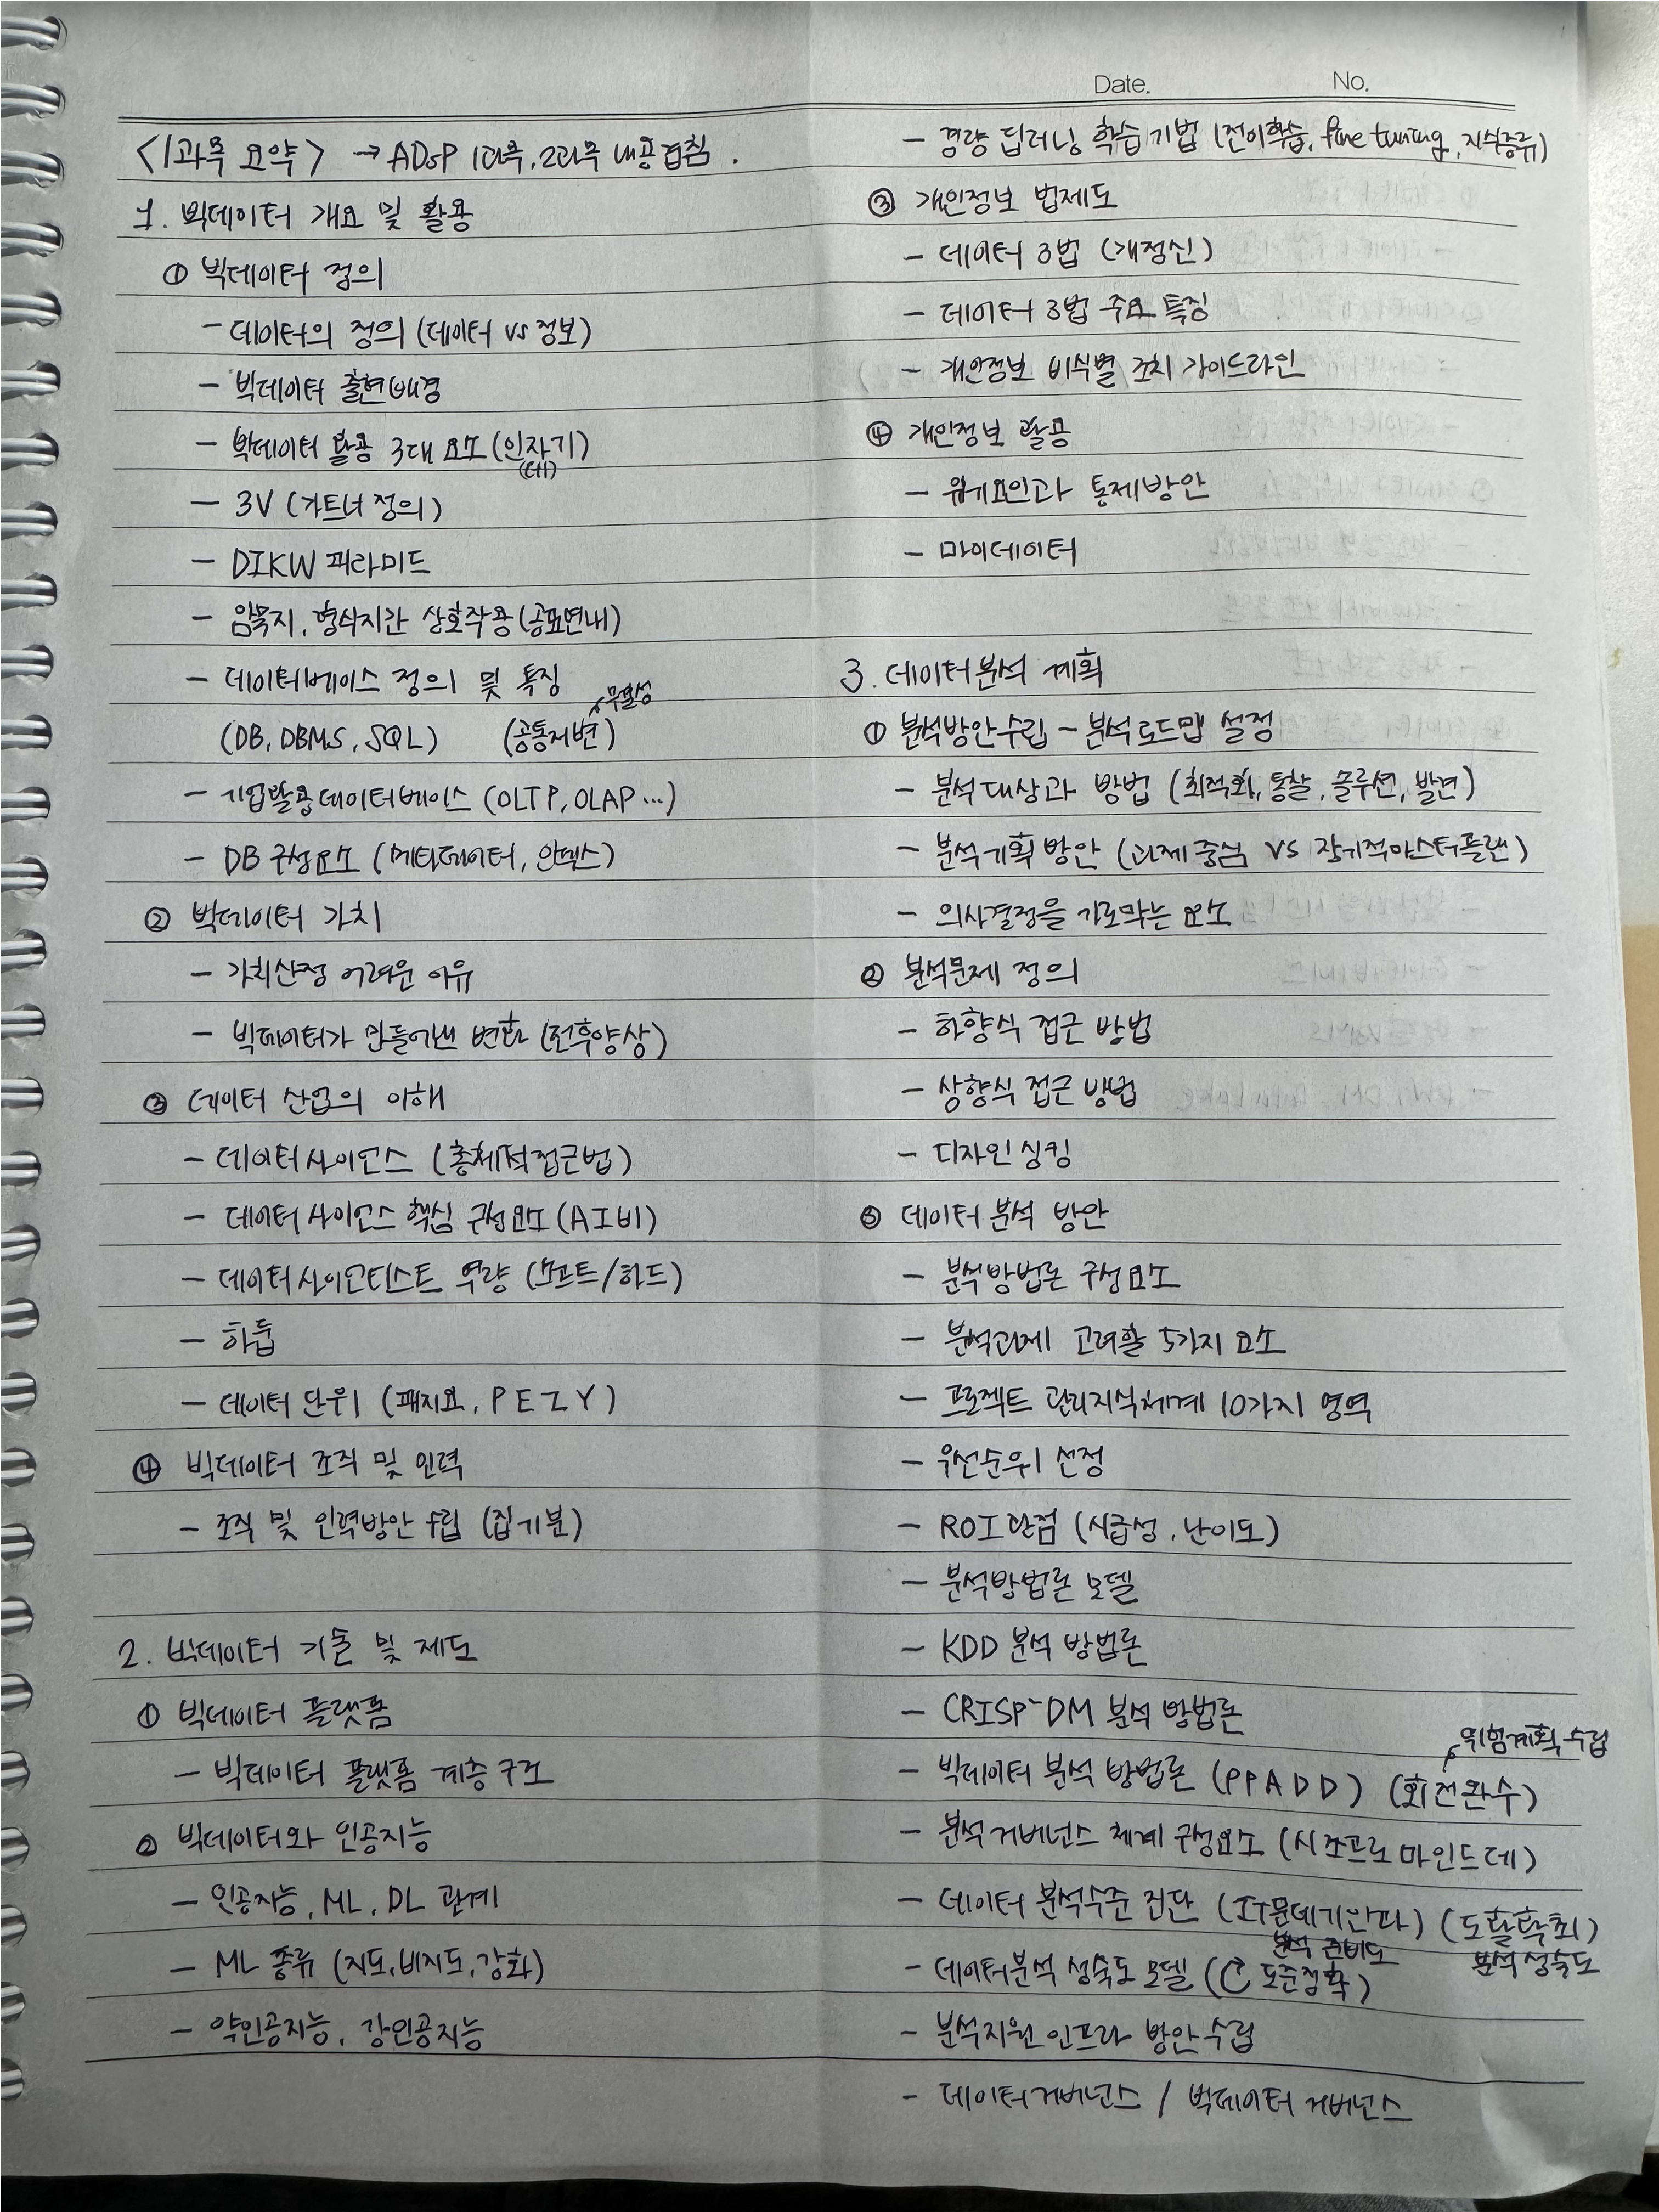 Date. No.
<1과목 요약> → ADsP 1과목, 2과목 내용겹침.
1. 빅데이터 개요 및 활용
① 빅데이터 정의
- 데이터의 정의 (데이터 vs 정보)
- 빅데이터 출현배경
- 빅데이터 활용 3대 요소 (인자기)
- 3V (가트너 정의)
- DIKW 피라미드
- 암묵지, 형식지간 상호작용 (공표연내)
- 데이터베이스 정의 및 특징
(DB, DBMS, SQL) (공통저변)
- 기업활용데이터베이스 (OLTP, OLAP ...)
- DB 구성요소 (메타데이터, 인덱스)
② 빅데이터 가치
- 가치산정 어려운 이유
- 빅데이터가 만들어낸 변화 (전후양상)
③ 데이터 산업의 이해
- 데이터사이언스 (총체적접근법)
- 데이터 사이언스 핵심 구성요소 (AI비)
- 데이터사이언티스트 역량 (소프트/하드)
- 하둡
- 데이터 단위 (패지요, P E Z Y)
④ 빅데이터 조직 및 인력
- 조직 및 인력방안 수립 (집기분)
2. 빅데이터 기술 및 제도
① 빅데이터 플랫폼
- 빅데이터 플랫폼 계층구조
② 빅데이터와 인공지능
- 인공지능, ML, DL 관계
- ML 종류 (지도, 비지도, 강화)
- 약인공지능, 강인공지능
- 경량 딥러닝 학습기법 (전이학습, fine tuning, 지식증류)
③ 개인정보 법제도
- 데이터 3법 (개정신)
- 데이터 3법 주요 특징
- 개인정보 비식별 조치 가이드라인
④ 개인정보 활용
- 위기요인과 통제방안
- 마이데이터
3. 데이터분석 계획
① 분석방안수립 - 분석로드맵 설정
- 분석대상과 방법 (최적화, 통찰, 솔루션, 발견)
- 분석기획 방안 (과제 중심 vs 장기적마스터플랜)
- 의사결정을 가로막는 요소
② 분석문제 정의
- 하향식 접근 방법
- 상향식 접근 방법
- 디자인 싱킹
③ 데이터 분석 방안
- 분석방법론 구성요소
- 분석과제 고려할 5가지 요소
- 프로젝트 관리지식체계 10가지 영역
- 우선순위 선정
- ROI 관점 (시급성, 난이도)
- 분석방법론 모델
- KDD 분석 방법론
- CRISP-DM 분석 방법론
위험계획 수립
- 빅데이터 분석 방법론 (PPADD) (회전완수)
- 분석거버넌스 체계 구성요소 (시조프로마인드데)
- 데이터 분석수준 진단 (IT문데기인파) (도활확최)
분석 준비도 분석 성숙도
- 데이터분석 성숙도 모델 (도준정확)
- 분석지원 인프라 방안 수립
- 데이터거버넌스 / 빅데이터 거버넌스